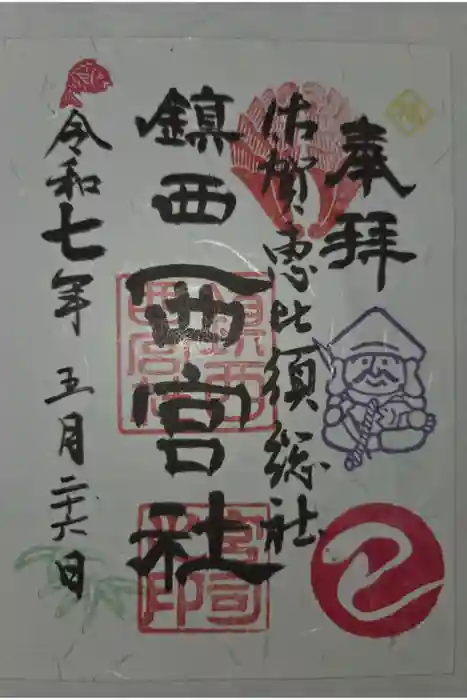 奉拝
佐賀恵比須総社
鎮西西宮社
令和七年五月二十六日
鎮西
西宮社
宮司
之印